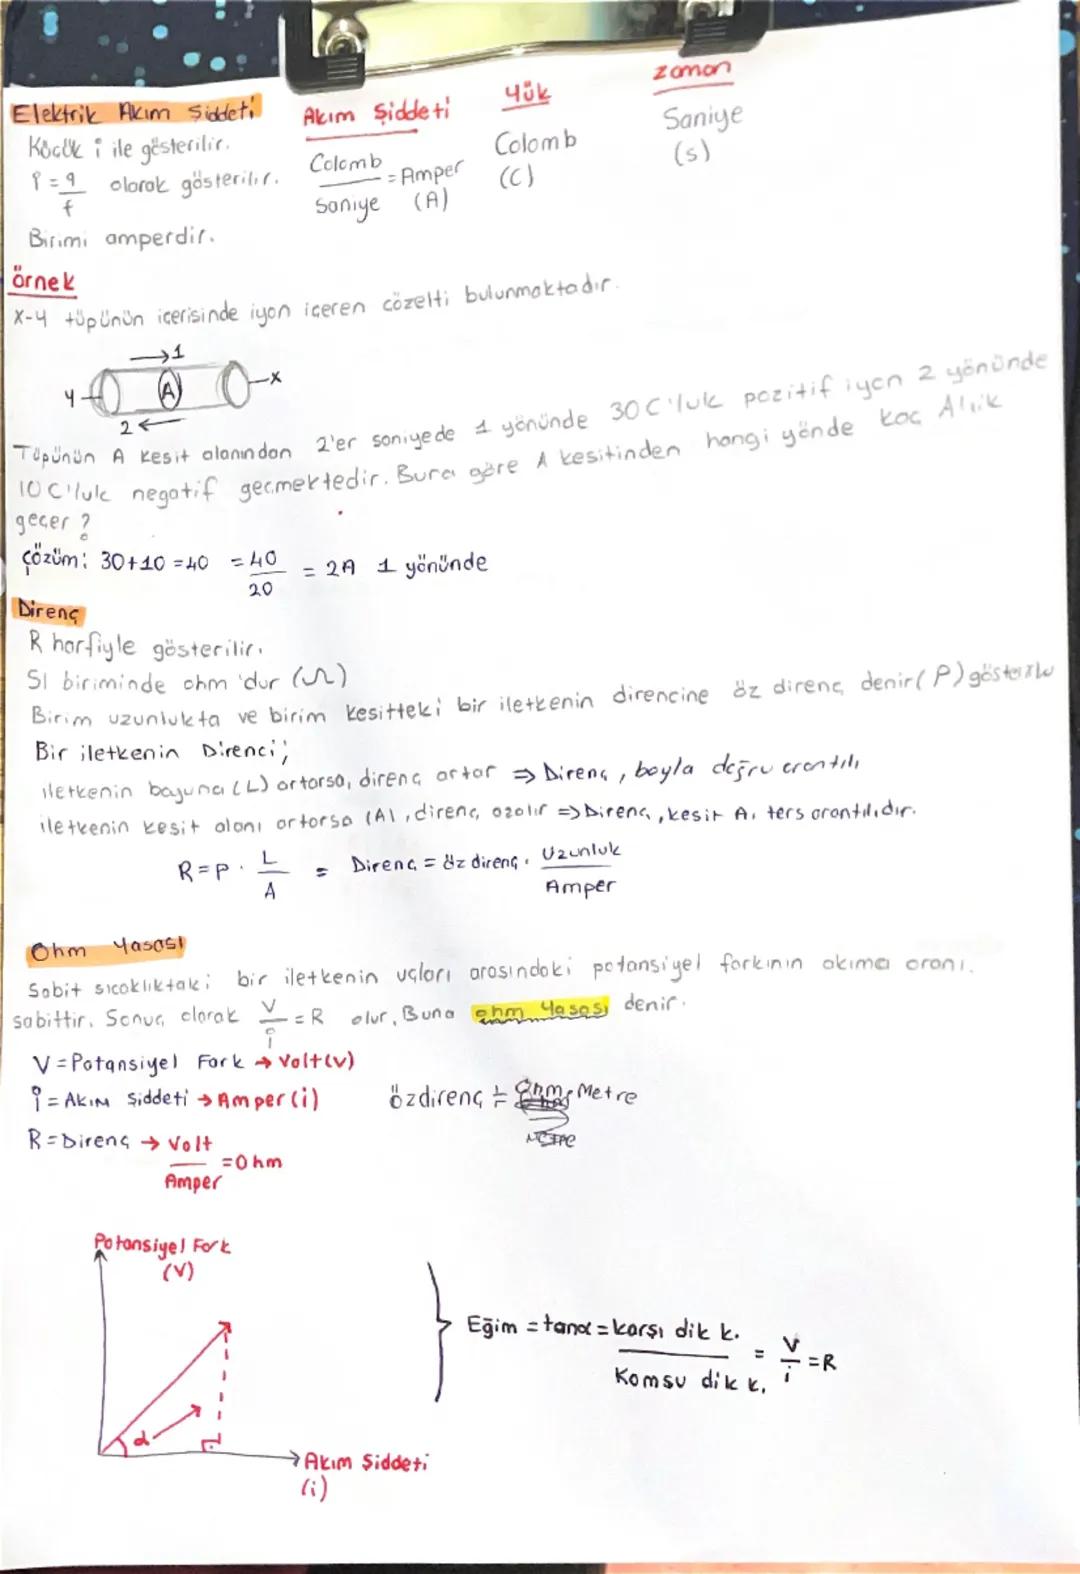 Elektrik Akım Şiddeti
Akım Şiddeti
Yük
zaman
Küçük i ile gösterilir.
Colomb
Saniye
= Amper (A)
Colomb
(C)
Saniye
(s)
i = q
t
olarak gösterilir.
Birimi amperdir.
örnek
X-Y tüpünün içerisinde iyon içeren çözelti bulunmaktadır.
→1
Y
A
X
2←
Tüpünün A kesit alanından 2'er saniyede 1 yönünde 30 C'luk pozitif iyon 2 yönünde
10 C'luk negatif geçmektedir. Buna göre A kesitinden hangi yönde kaç A'lik
geçer?
Çözüm: 30+10 = 40 = 40
20
= 2A 1 yönünde
Direnç
R harfiyle gösterilir.
SI biriminde ohm'dur (Ω)
Birim uzunlukta ve birim kesitteki bir iletkenin direncine öz direnç denir (P) gösterilir
Bir iletkenin Direnci;
iletkenin boyuna (L) artarsa, direnç artar ⇒ Direnç, boyla doğru orantılı
iletkenin kesit alanı artarsa (A), direnç azalır ⇒ Direnç, kesit A. ters orantılıdır.
R = P . L
A
= Direnç = öz direnç . Uzunluk
Amper
Ohm Yasası
Sabit sıcaklıktaki bir iletkenin uçları arasındaki potansiyel farkının akıma oranı.
sabittir. Sonuç olarak V
i
= R olur. Buna ohm Yasası denir.
V = Potansiyel Fark → Volt (V)
i = Akım Şiddeti → Amper (i)
özdirenç = Ohm . Metre
Metre
R = Direnç → Volt
Amper
= Ohm
Potansiyel Fark
(V)
α
Akım Şiddeti
(i)
Eğim = tanα = karşı dik k.
Komşu dik k.
= V
i
= R